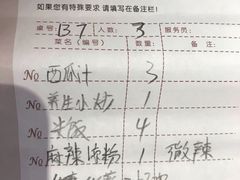 如果您有特殊要求 请填写在备注栏!
桌号: 137 人数: 3 服务员:
菜名(编号) 数量: 备注:
No 西瓜汁 3
No 养生小炒 1
No 米饭 4
No 麻辣凉粉 1 微辣